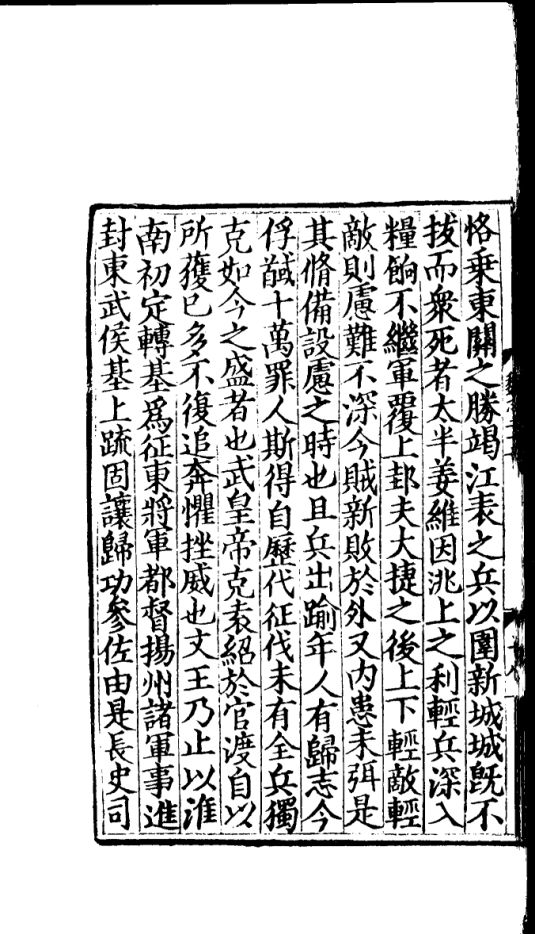 恪乗東關之勝竭江表之兵以圍新城城旣不
拔而衆死者太半姜維因洮上之利輕兵深入
糧餉不繼軍覆上邽夫大捷之後上下輕敵輕
敵則慮難不深今賊新敗於外又内患未弭是
其脩備設慮之時也且兵出踰年人有歸志今
俘馘十萬罪人斯得自歷代征伐未有全兵獨
克如今之盛者也武皇帝克袁紹於官渡自以
所獲已多不復追奔懼挫威也文王乃止以淮
南初定轉基爲征東將軍都督揚州諸軍事進
封東武侯基上疏固讓歸功參佐由是長史司